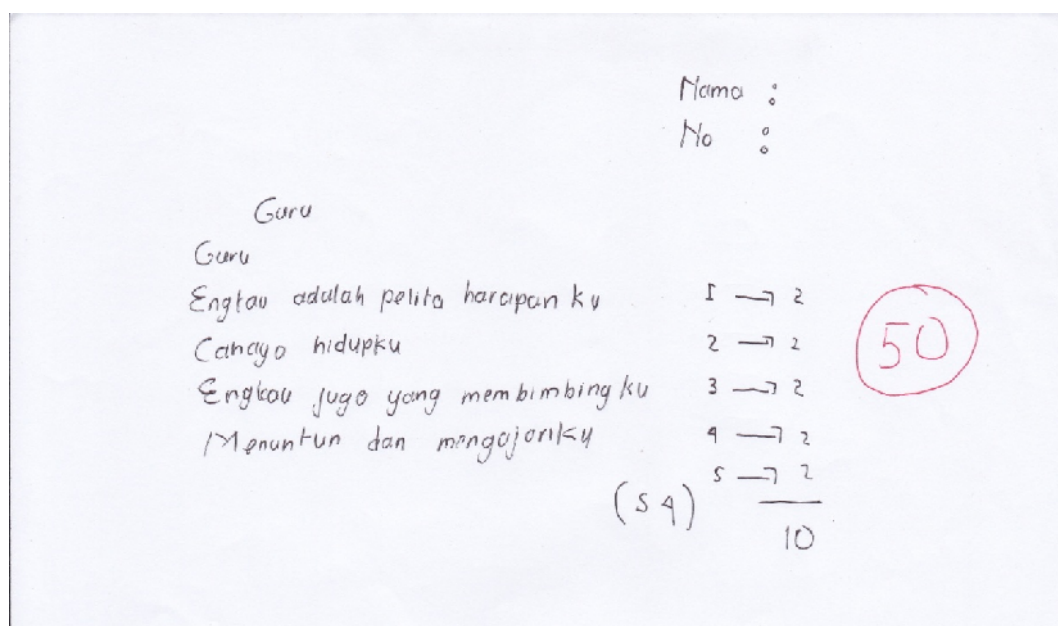 Nama :
No :
Guru
Guru
Engkau adalah pelita harapan ku
Cahayo hidupku
Engkau juga yang membimbing ku
Menuntun dan mengajariku
1 → 2
2 → 2
3 → 2
4 → 2
5 → 2
(S4)
10
50